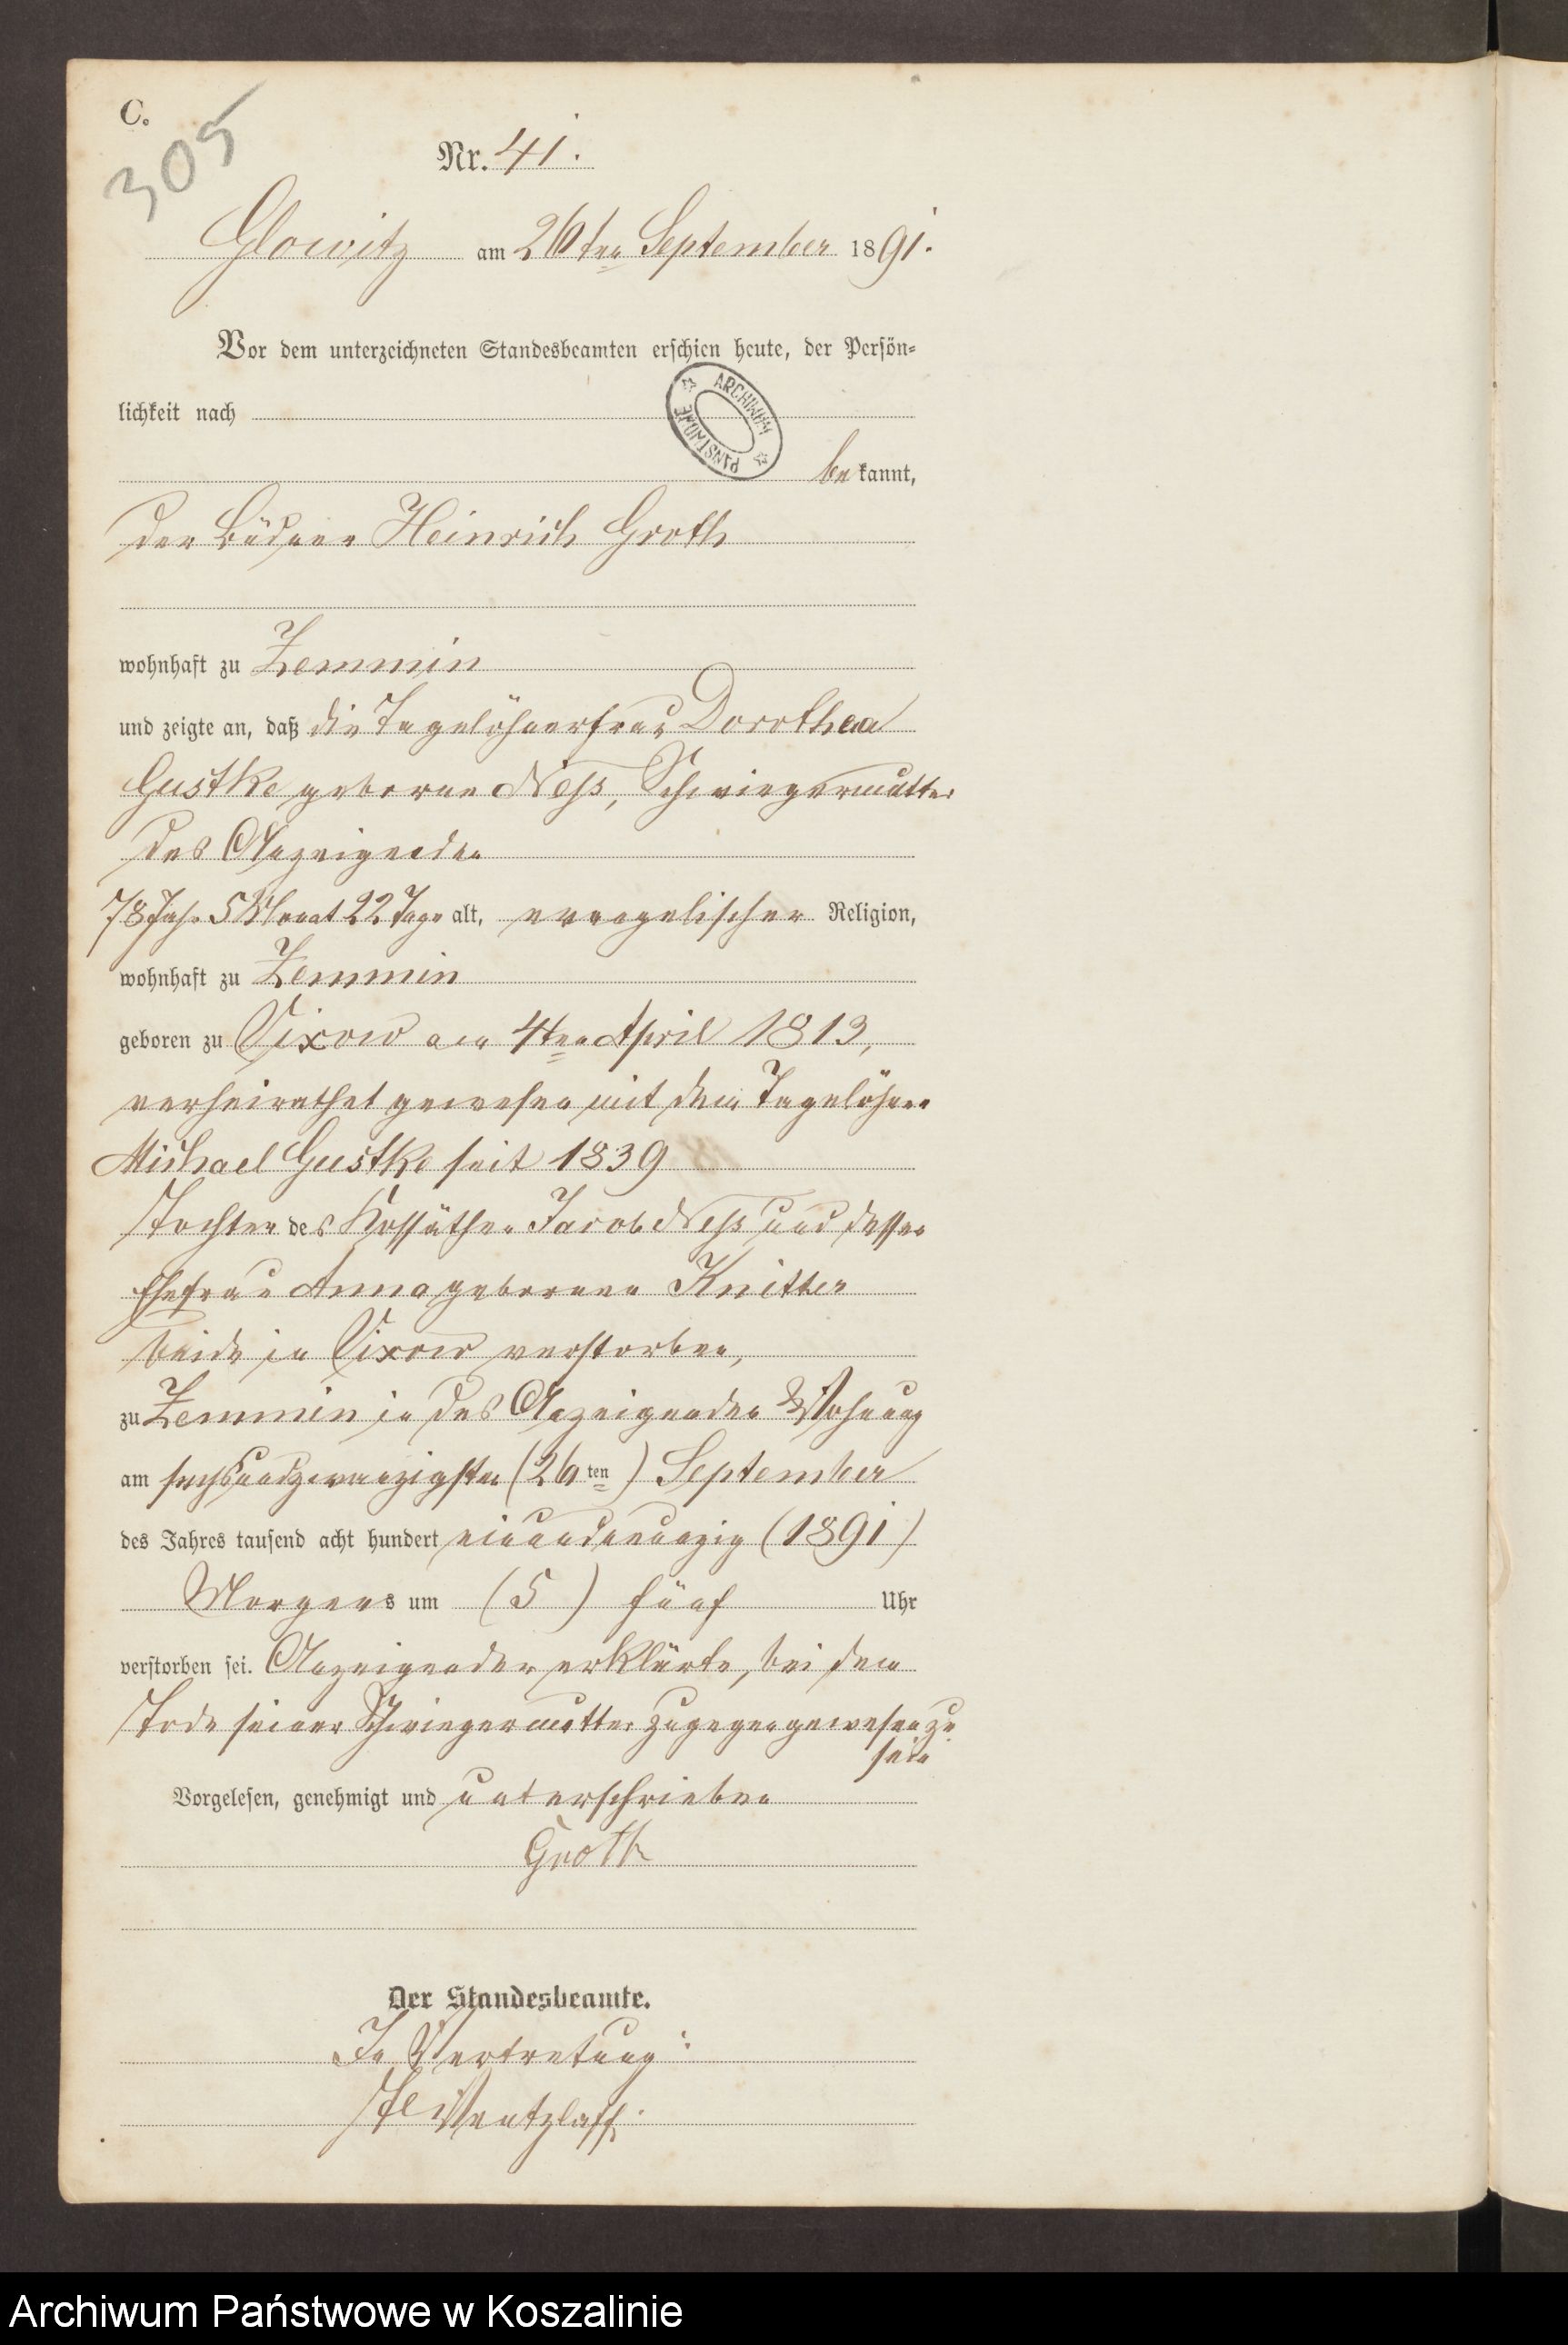 C.
305
Nr. 41.
Glowitz am 26ten September 1891.
Vor dem unterzeichneten Standesbeamten erschien heute, der Persön-
lichkeit nach
ARCHIWUM PAŃSTWOWE
bekannt,
der Büdner Heinrich Groth
wohnhaft zu Zemmin
und zeigte an, daß die Tagelöhnerfrau Dorothea
Gustke geborne Neß, Schwiegermutter
des Anzeigenden
78 Jahr 5 Monat 22 Tage alt, evangelischer Religion,
wohnhaft zu Zemmin
geboren zu Vixow am 4ten April 1813,
verheirathet gewesen mit dem Tagelöhner
Michael Gustke seit 1839
Tochter des Kossäthen Jacob Neß und dessen
Ehefrau Anna geborenen Knitter
beide in Vixow verstorben,
zu Zemmin in des Anzeigenden Wohnung
am sechsundzwanzigsten (26ten) September
des Jahres tausend acht hundert einundneunzig (1891)
Morgens um (5) fünf Uhr
verstorben sei. Anzeigender erklärte, bei dem
Tode seiner Schwiegermutter zugegen gewesen zu
sein
Vorgelesen, genehmigt und unterschrieben
Groth
Der Standesbeamte.
In Vertretung:
Wentzlaff.
Archiwum Państwowe w Koszalinie